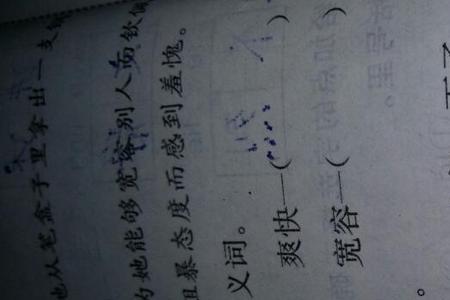 他从笔盒子里拿出一支
的她能够宽容别人而钦佩
粗暴态度而感到羞愧。
义词。
爽快—( )
宽容—( )